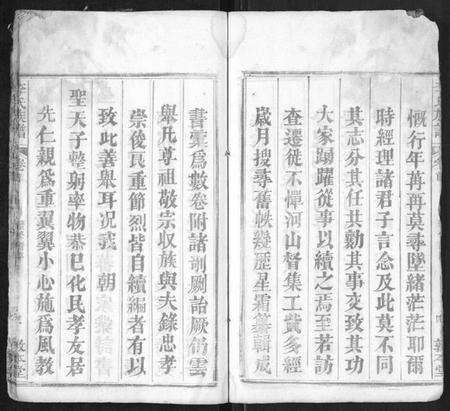 慨行年苒苒莫尋墜緒茫茫耶爾
時經理諸君子言念及此莫不同
其志分其任共勷其事交致其功
大家踴躍從事以續之焉至若訪
查遷徙不憚河山督集工貲多經
歲月搜尋舊帙幾歷星霜纂輯成
書彙爲數卷附諸剞劂詒厥仍雲
舉凡尊祖敬宗收族與夫錄忠孝
崇俊艮重節烈皆自續編者有以
致此善舉耳况我朝
聖天子整躬率物恭巳化民孝友居
先仁親爲重翼翼小心施爲風教
李氏族譜
敦本堂